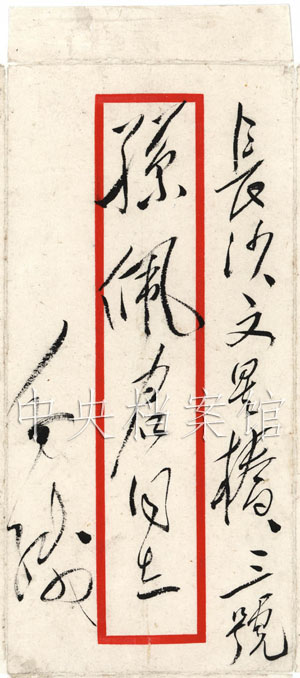 長沙、文星橋、三號
孫佩君同志
毛緘
中央档案馆